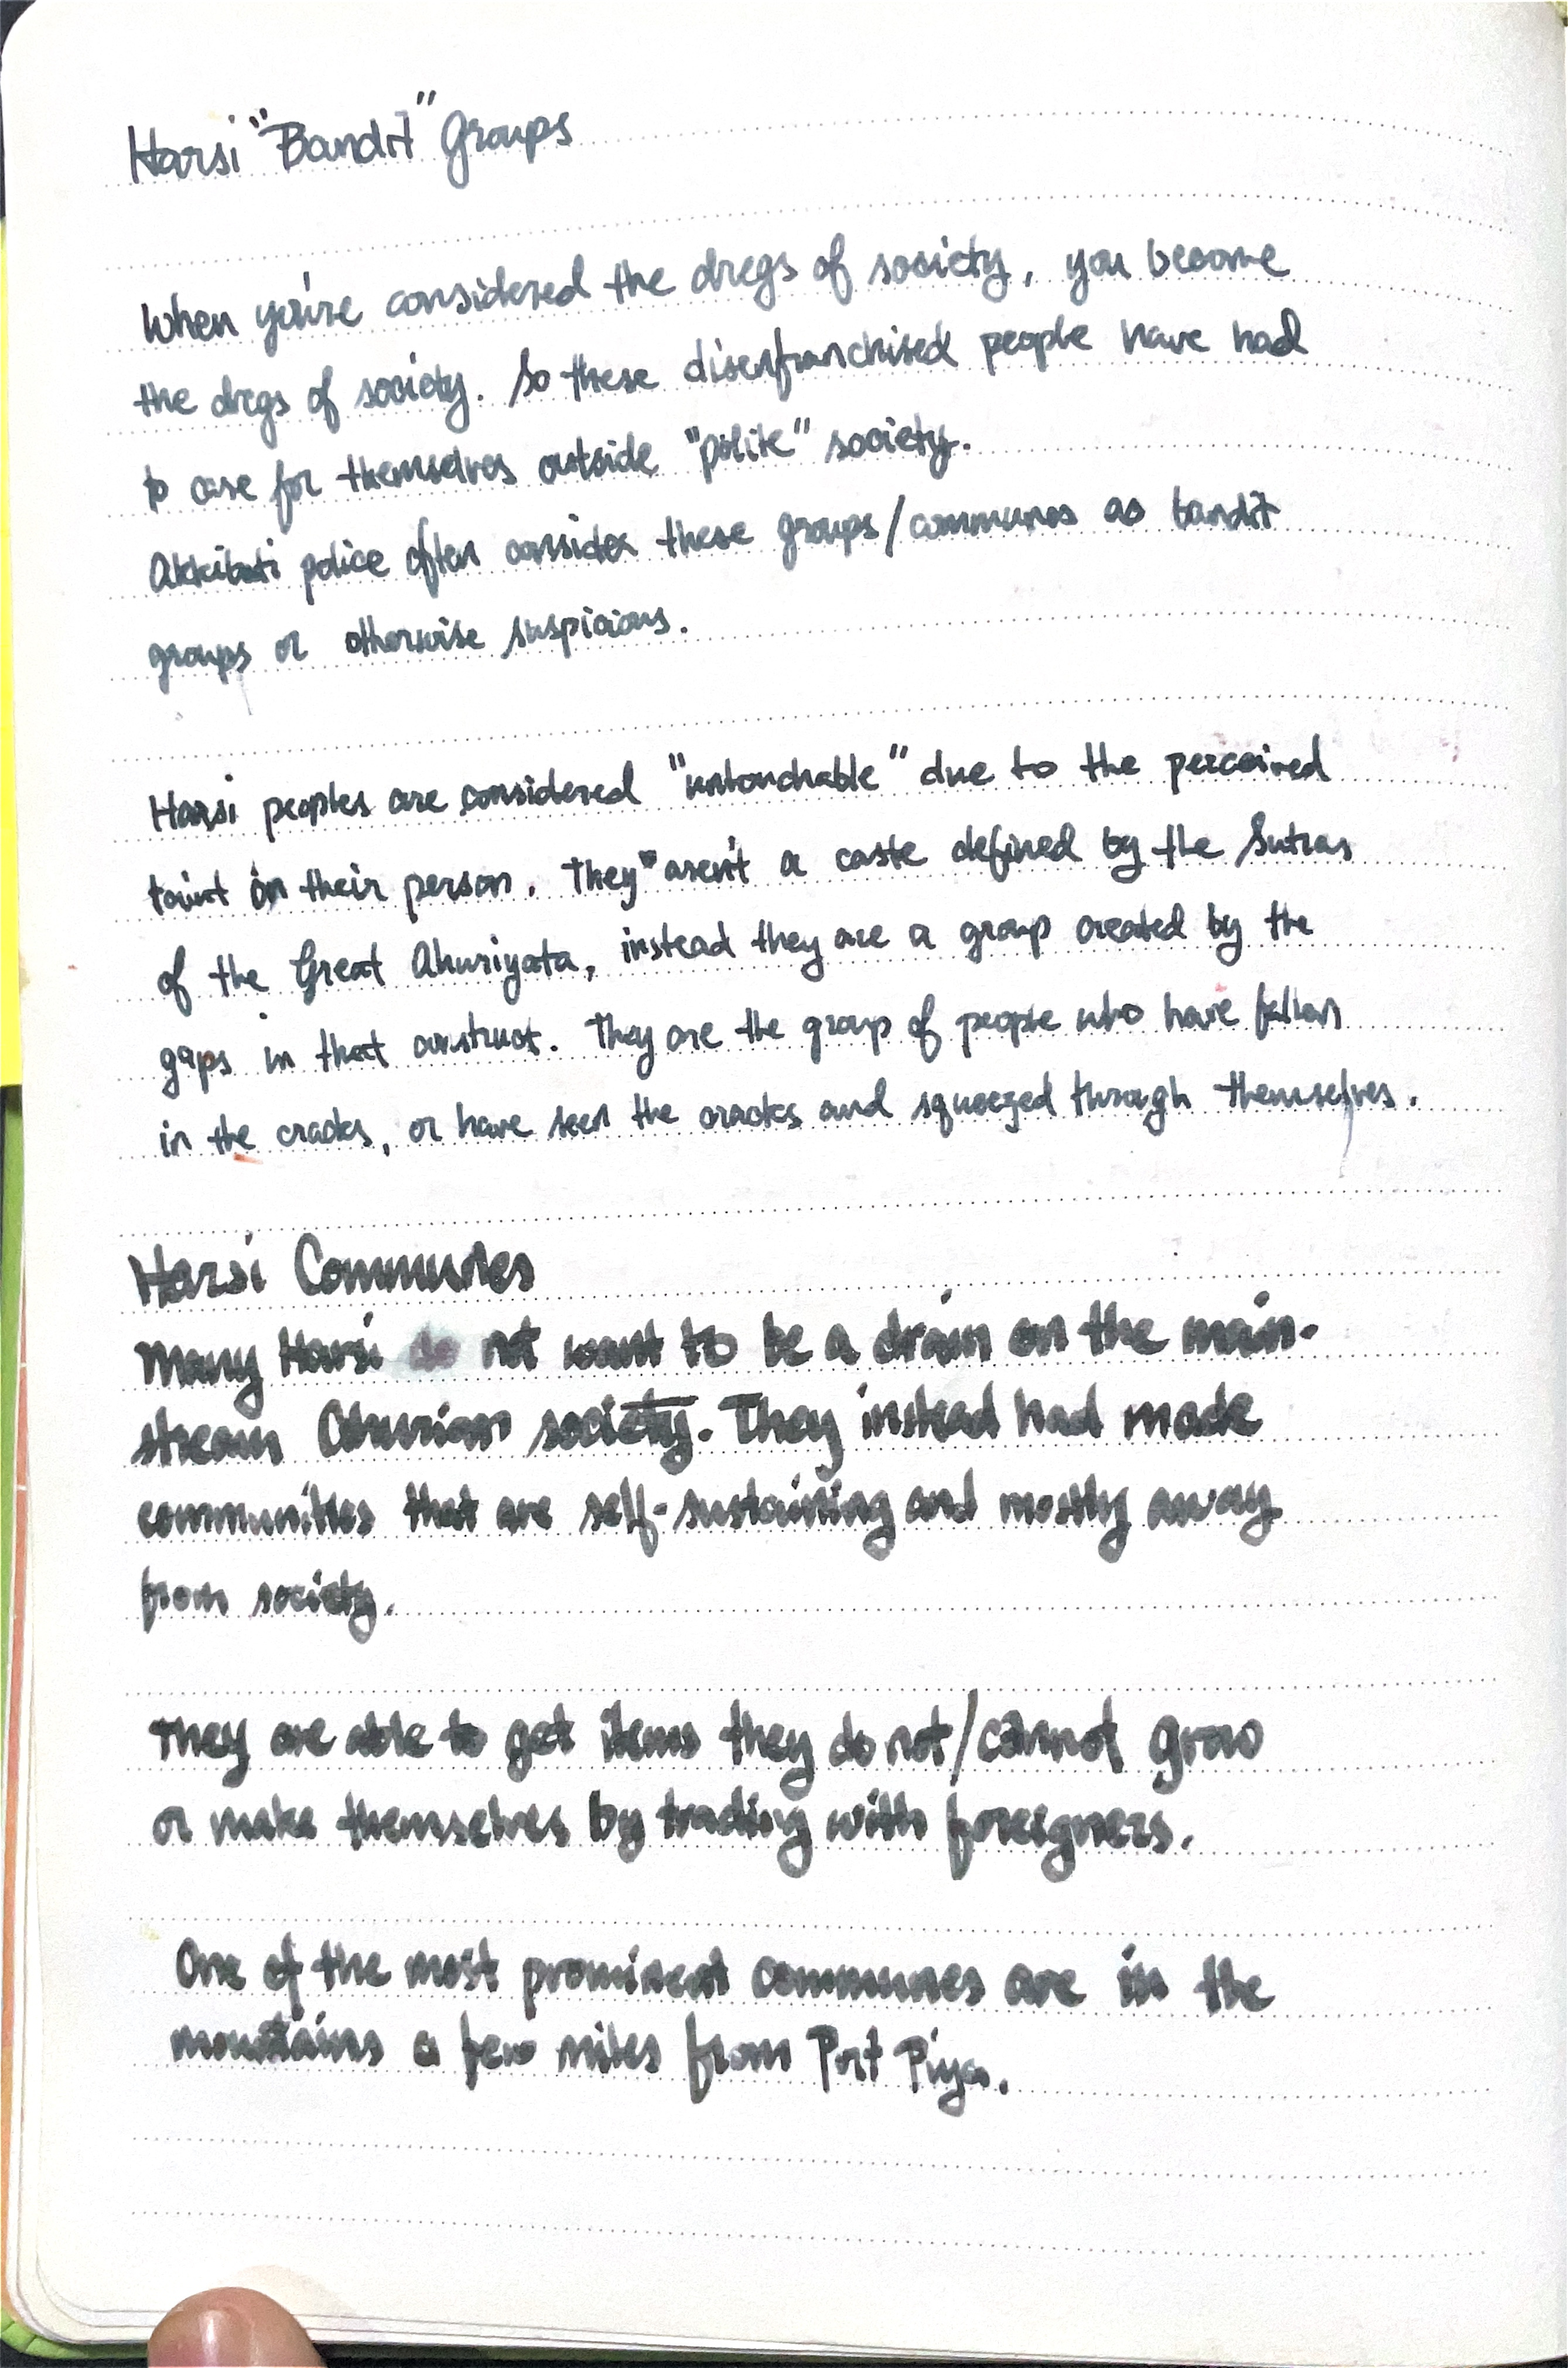 Harsi "Bandit" Groups
When you're considered the dregs of society, you become
the dregs of society. So these disenfranchised people have had
to care for themselves outside "polite" society.
police often consider these groups/communes as bandit
groups or otherwise suspicious.
Harsi peoples are considered "untouchable" due to the perceived
taint on their person. They aren't a caste defined by the Sutras
of the Great Ahuriyata, instead they are a group created by the
gaps in that construct. They are the group of people who have fallen
in the cracks, or have seen the cracks and squeezed through themselves.
Harsi Communes
Many Harsi do not want to be a drain on the main-
stream Ahurian society. They instead had made
communities that are self-sustaining and mostly away
from society.
They are able to get items they do not/cannot grow
or make themselves by trading with foreigners.
One of the most prominent communes are in the
mountains a few miles from Port Piya.